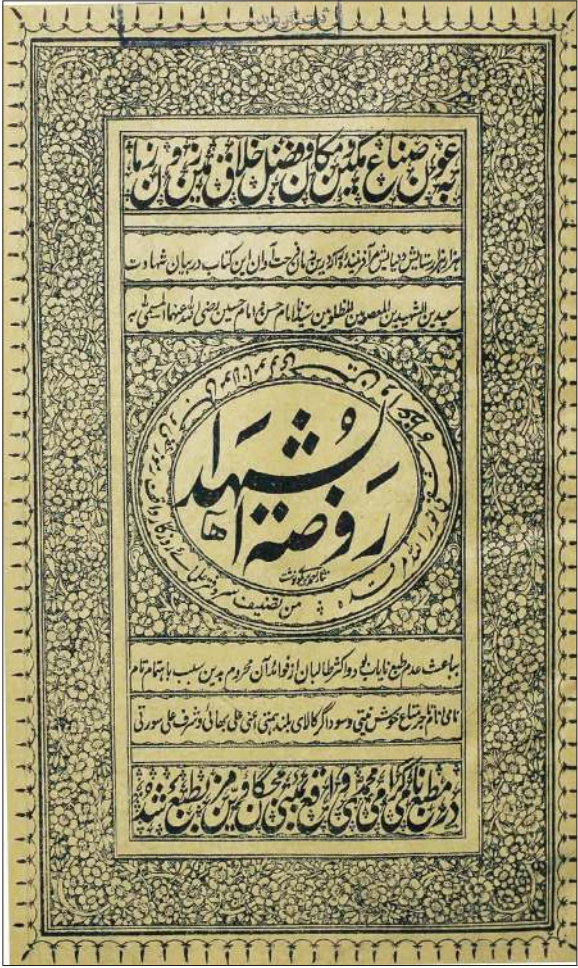 به عون صناع مکین و مکان و فضل خلاق زمین و زمان
هزار هزار ستایش و نیایش مر آفریننده را که درین زمان فرحت آوان این کتاب در بیان شهادت
سعیدین الشهیدین المعصومین المظلومین سیدنا امام حسن و امام حسین رضی الله عنهما المسمی به
روضة الشهدا
من تصنیف سر دفتر علمای روزگار واقف
بباعث عدم طبع نایاب بود و اکثر طالبان از فوائد آن محروم بدین سبب باهتمام تمام
نامی تاجر متاع خوش نیتی و سوداگر کالای بلند همتی اعنی علی بهائی و شرف علی سورتی
در مطبع نامی گرامی محمدی واقع بمبئی مزین بطبع شده